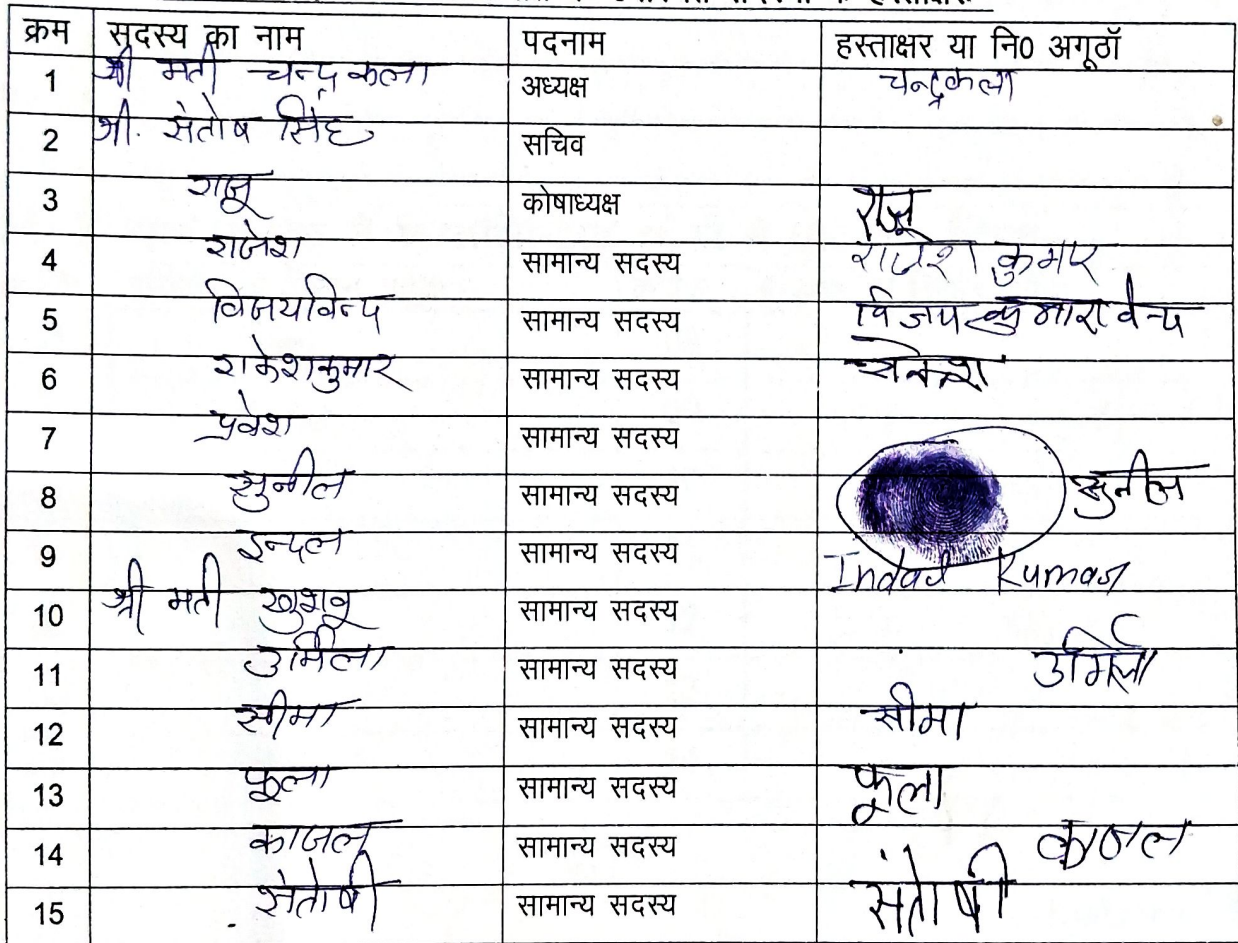 क्रम सदस्य का नाम पदनाम हस्ताक्षर या नि0 अगूठॉ
1 श्री मती चन्द्रकला अध्यक्ष चन्द्रकला
2 श्री. संतोष सिंह सचिव
3 राजू कोषाध्यक्ष राजू
4 राजेश सामान्य सदस्य राजेश कुमार
5 विजयविन्द सामान्य सदस्य विजय कुमार
6 राकेशकुमार सामान्य सदस्य
7 प्रवेश सामान्य सदस्य
8 सुनील सामान्य सदस्य सुनील
9 इन्दल सामान्य सदस्य Indal Kumar
10 श्री मती खुशबू सामान्य सदस्य
11 उर्मिला सामान्य सदस्य उर्मिला
12 सीमा सामान्य सदस्य सीमा
13 फूला सामान्य सदस्य फूला
14 काजल सामान्य सदस्य काजल
15 संतोषी सामान्य सदस्य संतोषी